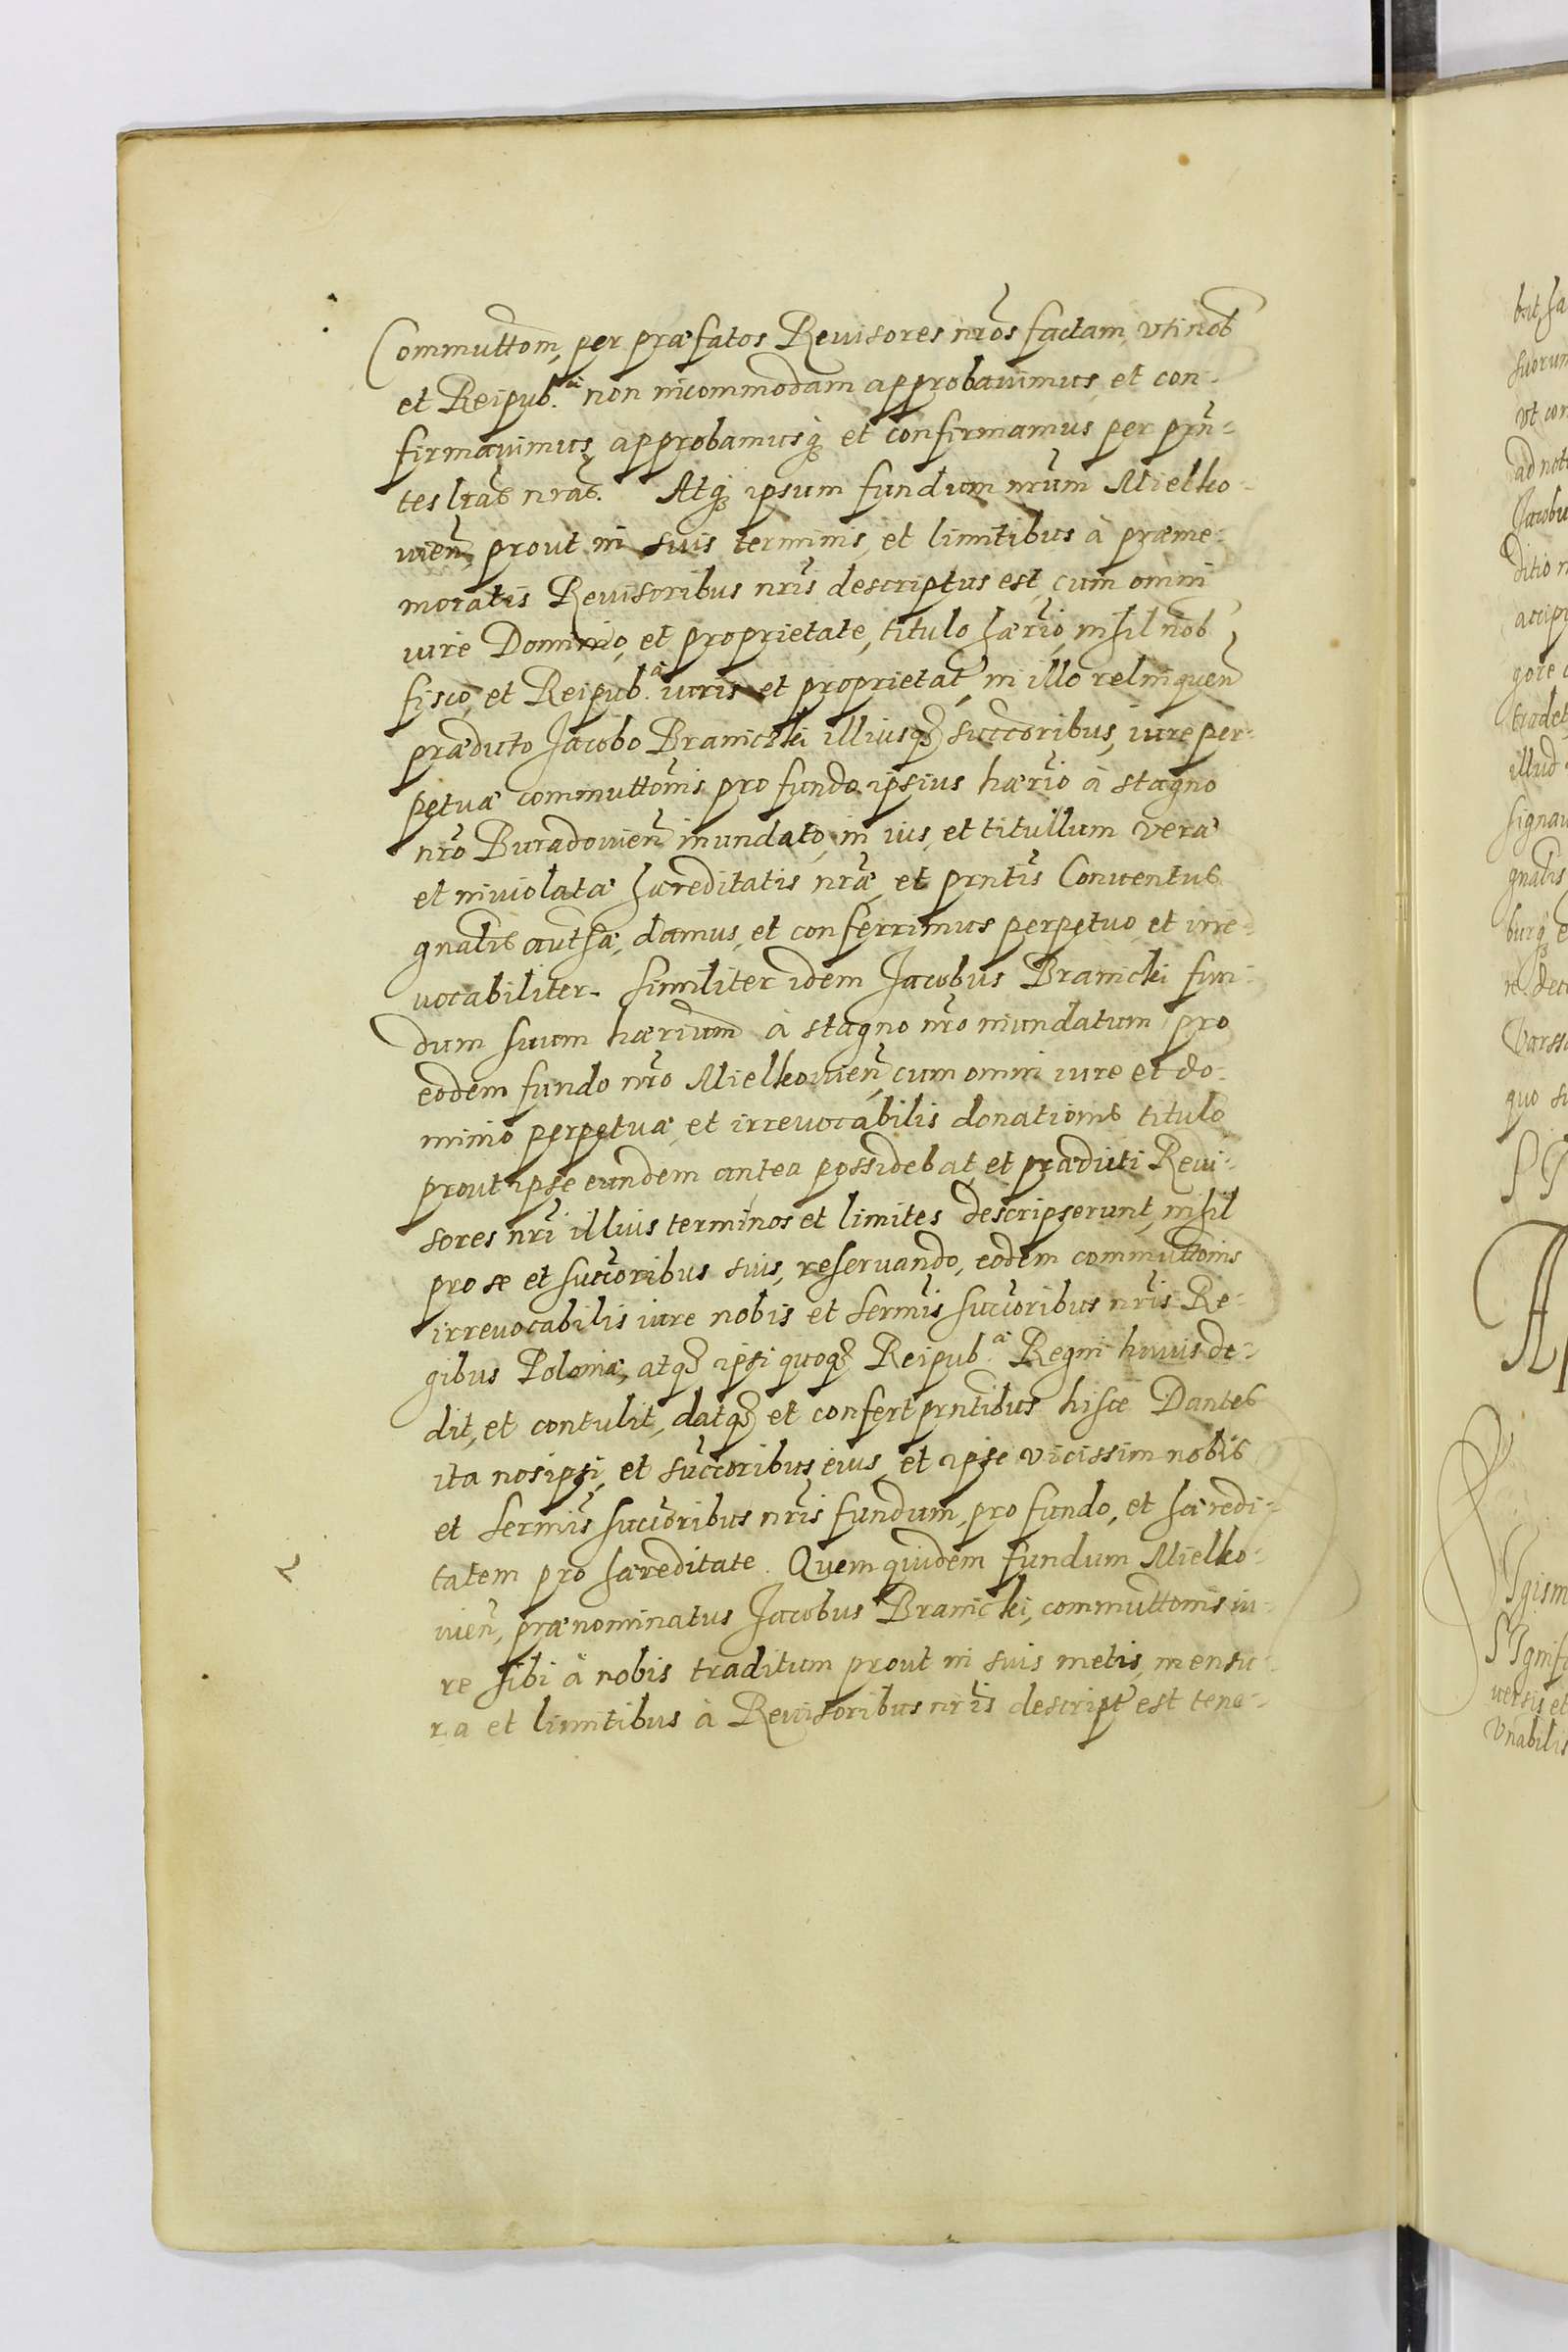 Commuttom, per præfatos Reuisores nr̃os factam, vti nob
et Reipub.ᶜᵃᵉ non incommodam approbauimus, et con-
firmauimus, approbamusq₃ et confirmamus per pr̃n-
tes lr̃as nr̃as. Atq₃ ipsum fundum nr̃um Mielko-
uien̄, prout in suis terminis, et limitibus à præme-
moratis Reuisoribus nr̃is descriptus est, cum omni
iure Dominio, et proprietate, titulo hær̃io, nihil nob
fisco, et Reipub. iuris et proprietat in illo relinquen̄
prædicto Jacobo Branicski illiusq₃ succ̃oribus, iure per-
petuæ commutto̅nis pro fundo ipsius hær̃io à stagno
nr̃o Buradouien̄ inundato, in ius, et titullum veræ
et inuiolatæ hæreditatis nr̃æ, et pr̃ntis Conuentus
gnalis auth̃æ, damus, et conferrimus perpetuo, et irre-
uocabiliter. Similiter idem Jacobus Branicki fun-
dum suum hærium à stagno nr̃o inundatum pro
eodem fundo nr̃o Mielkouien̄, cum omni iure et do-
minio perpetuæ, et irreuocabilis donationis titulo
prout ipse eundem antea possidebat, et prædicti Reui-
sores nr̃i illius terminos et limites descripserunt, nihil
pro se et succ̃oribus suis, reseruando, eodem commutto̅nis
irreuocabilis iure nobis et sermis succ̃oribus nr̃is Re-
gibus Poloniæ, atq₃ ipsi quoq₃ Reipub. Regni huius de-
dit, et contulit, datq₃ et confert pr̃ntibus hisce Dantes
ita nos ipsi, et succ̃oribus eius, et ipse vicissim nobis
et sermis succ̃oribus nr̃is fundum, pro fundo, et hæredi-
tatem pro hæreditate. Quem quidem fundum Mielko-
uien̄, prænominatus Jacobus Branicki, commutto̅nis iu-
re sibi à nobis traditum prout in suis metis, mensu-
ra et limitibus à Reuisoribus nr̃is descript est tene-